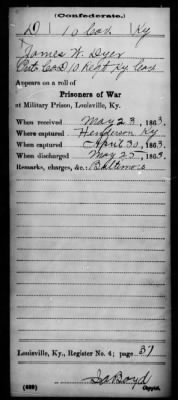 (Confederate.)
D 10 Cav. Ky
James W. Dyer
Pvt Co. D, 10 Regt Ky Cav
Appears on a roll of
Prisoners of War
at Military Prison, Louisville, Ky.
When received May 23, 1863.
Where captured Henderson Ky
When captured April 30, 1863.
When discharged May 25, 1863.
Remarks, charges, &c.: Baltimore
Louisville, Ky., Register No. 4; page 37
Boyd
(639) Copyist.